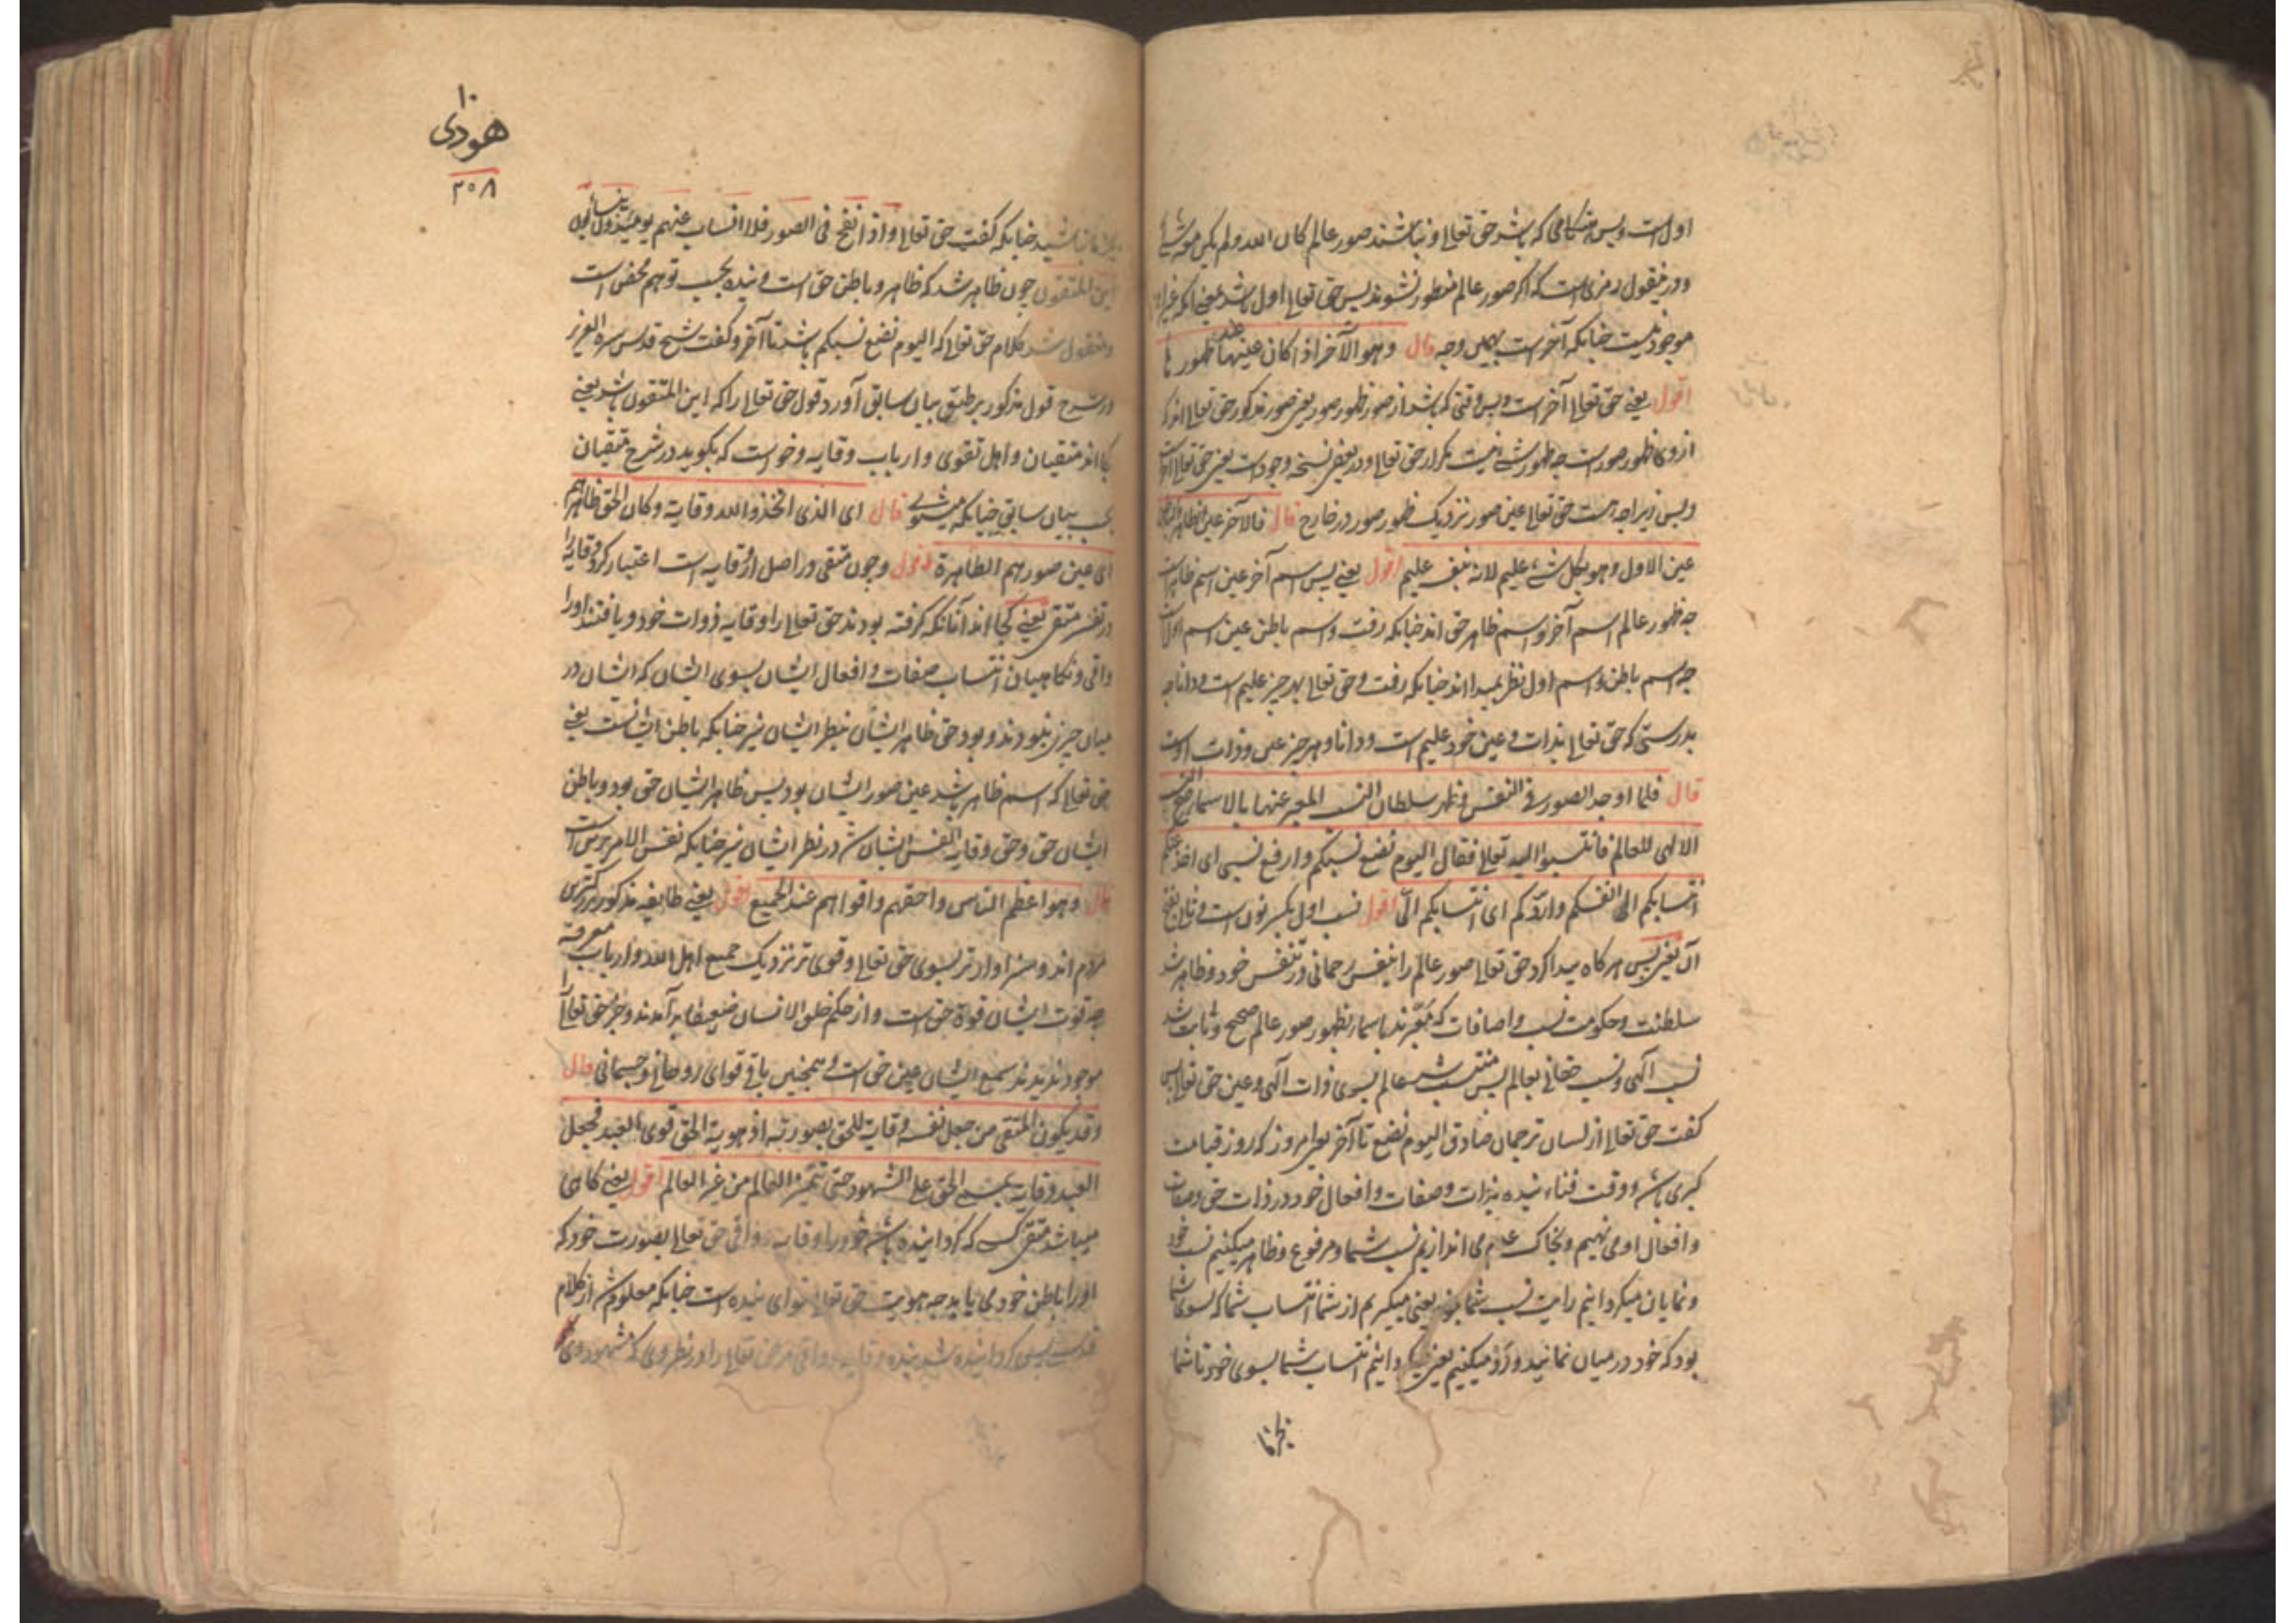 اول است و پس هنگامی که باشد حق تعالی و نباشند صور عالم کان الله ولم یکن معه شئ
و در منقول رمزی است که اگر صور عالم منظور نشوند پس حق تعالی اول باشد یعنی آنکه غیر او
موجود نیست چنانکه آخر است بهمین وجه قال وهو الآخر اذا کان عینها عند ظهورها
اقول یعنی حق تعالی آخر است و پس وقتی که باشد از صور ظهور صور یعنی صور مذکور حق تعالی
از روی ظهور صور است چه ظهور شئ نیست مکرار حق تعالی و در بعض نسخه وجود است یعنی حق تعالی
و پس زیرا چه هست حق تعالی عین صور نزدیک ظهور صور در خارج قال فالآخر عین الظاهر والباطن
عین الاول وهو بکل شئ علیم لانه بنفسه علیم اقول یعنی پس اسم آخر عین اسم ظاهر است
چه ظهور عالم اسم آخر و اسم ظاهر حق اند چنانکه رفت و اسم باطن عین اسم اول است
چه اسم باطن و اسم اول نظر بمبدا اند چنانکه رفت و حق تعالی بهر چیز علیم است و دانا چه
بدرستی که حق تعالی بذات و عین خود علیم است و دانا و هر چیز عین و ذات اوست
قال فلما اوجد الصور فی النفس وظهر سلطان النسب المعبر عنها بالاسماء صح النسب
الالهی للعالم فانتسبوا الیه تعالی فقال الیوم نضع نسبکم وارفع نسبی ای اخذ عنکم
انتسابکم الی انفسکم واردکم ای انتسابکم الی اقول نسب اول بکسر نون است و ثانی بفتح
آن یعنی پس هر کاه پیدا کرد حق تعالی صور عالم را بنفس رحمانی و در نفس خود و ظاهر شد
سلطنت و حکومت نسب و اضافات که معبرند باسماء بظهور صور عالم صحیح و ثابت شد
نسب الهی و نسب حقانی بعالم پس منتسب شد عالم بسوی ذات الهی و عین حق تعالی پس
گفت حق تعالی از لسان ترجمان صادق الیوم نضع تا آخر یعنی امروز که روز قیامت
کبری باشد و وقت فناء بنده بذات و صفات و افعال خود در ذات حق و صفات
و افعال او می نهیم و بخاک عدم می اندازیم نسب شما و مرفوع و ظاهر میکنیم نسب خود
و نمایان میکردانیم رایت نسب شما یعنی میکیریم از شما انتساب شما که بسوی شما
بود که خود در میان نمانید و رد میکنیم یعنی میکردانیم انتساب شما بسوی خود تا شما
۱۰
هودی
۳۰۸
باشید چنانکه گفت حق تعالی و اذا نفخ فی الصور فلا انساب بینهم یومئذ ولا یتسائلون
این المتقون چون ظاهر شد که ظاهر و باطن حق است و بنده بحسب توهم محض است
و منقول شد کلام حق تعالی که الیوم نضع نسبکم باشد تا آخر و گفت شیخ قدس سره العزیز
در شرح قول مذکور بر طبق بیان سابق آورد قول حق تعالی را که این المتقون باشد یعنی
کجا اند متقیان و اهل تقوی و ارباب وقایه و خواست که بگوید در شرح متقیان
بحسب بیان سابق چنانکه میشنوی قال ای الذی اتخذوا الله وقایة وکان الحق ظاهرهم
ای عین صورهم الظاهرة اقول و چون متقی در اصل از وقایه است اعتبار کرد وقایه را
در تفسیر متقی یعنی کجا اند آنانکه گرفته بودند حق تعالی را وقایه ذوات خود و یافتند او را
واقی و نگاهبان انتساب صفات و افعال ایشان بسوی ایشان که ایشان در
میان چیزی نبودند و بود حق ظاهر ایشان بنظر ایشان نیز چنانکه باطن ایشانست یعنی
حق تعالی که اسم ظاهر باشد عین صور ایشان بود پس ظاهر ایشان حق بود و باطن
ایشان حق و حق وقایه انفس ایشان شد در نظر ایشان نیز چنانکه نفس الامر همین است
قال وهو اعظم الناس واحقهم واقواهم عند الجمیع اقول یعنی طایفه مذکور بزرکترین
مردم اند و سزاوارتر بسوی حق تعالی و قوی تر نزدیک جمیع اهل الله و ارباب معرفة
چه قوت ایشان قوة حق است و از حکم خلق الانسان ضعیفا برآمدند و جز حق تعالی را
موجود ندیدند سمع ایشان عین حق است و همچنین باقی قوای روحانی و جسمانی قال
وقد یکون المتقی من جعل نفسه وقایة للحق بصورته اذ هویة الحق قوی العبد فجعل
العبد وقایة لمسمی الحق علی الشهود حتی یتمیز العالم من غیر العالم اقول یعنی کاهی
میباشد متقی کسی که کردانیده باشد خود را وقایه و واقی حق تعالی بصورت خود که
او را باطن خود می یابد چه هویت حق تعالی قوای بنده است چنانکه معلوم شد از کلام
قدسی پس کردانیده شد بنده وقایه و واقی مر حق تعالی را در نظر وی که مشهود وی